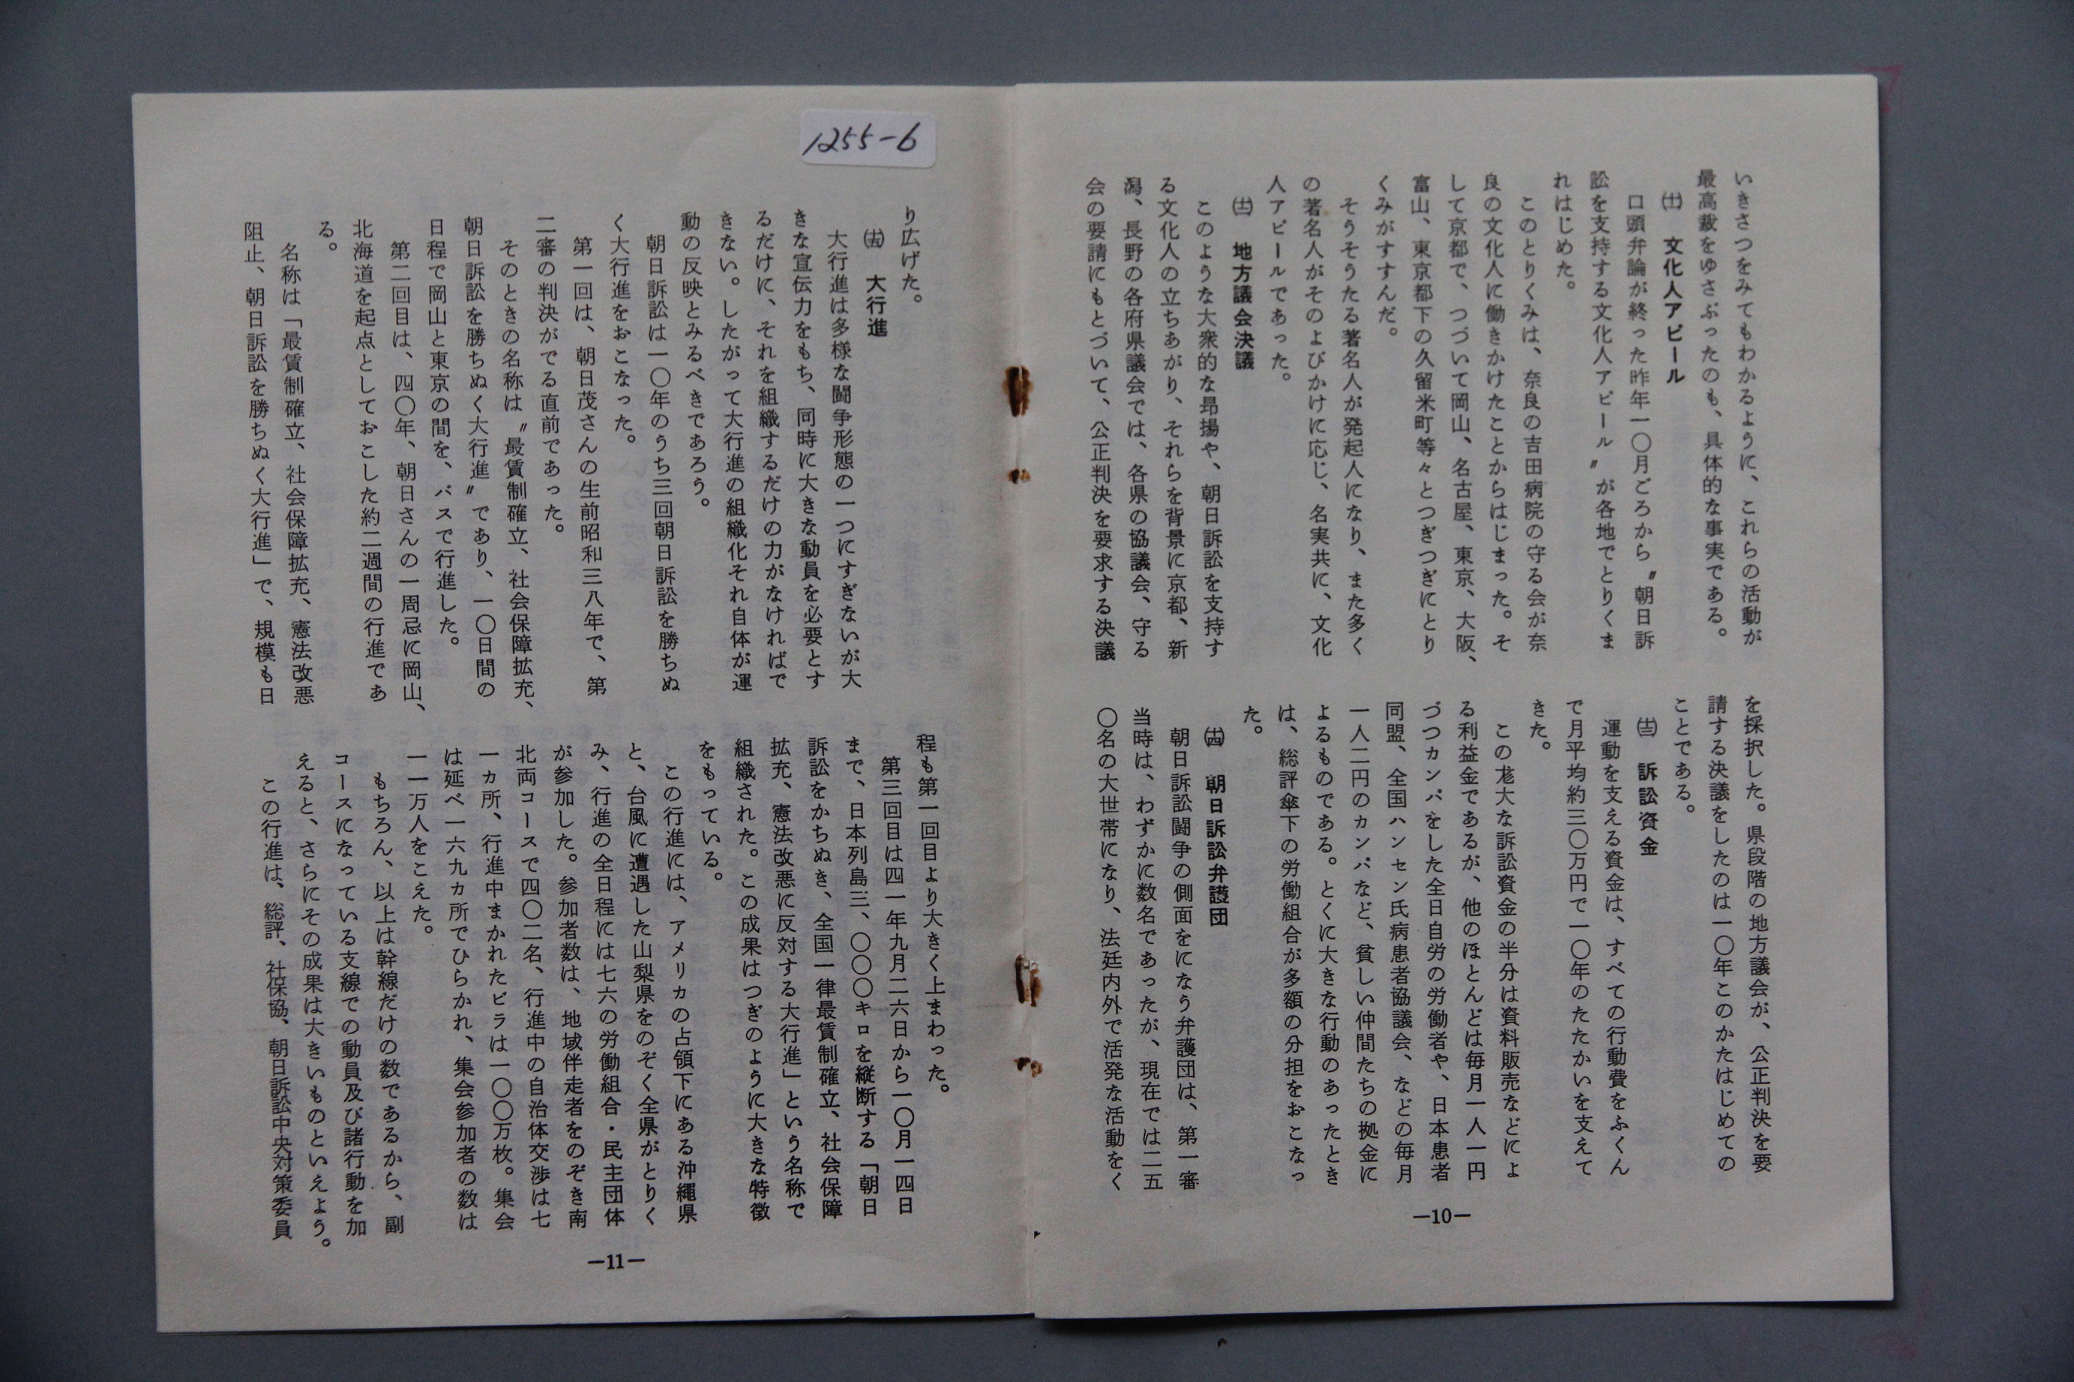 いきさつをみてもわかるように、これらの活動が
最高裁をゆさぶったのも、具体的な事実である。
㈩ 文化人アピール
口頭弁論が終った昨年一〇月ごろから〝朝日訴
訟を支持する文化人アピール〟が各地でとりくま
れはじめた。
このとりくみは、奈良の吉田病院の守る会が奈
良の文化人に働きかけたことからはじまった。そ
して京都で、つづいて岡山、名古屋、東京、大阪、
富山、東京都下の久留米町等々とつぎつぎにとり
くみがすすんだ。
そうそうたる著名人が発起人になり、また多く
の著名人がそのよびかけに応じ、名実共に、文化
人アピールであった。
(十二) 地方議会決議
このような大衆的な昂揚や、朝日訴訟を支持す
る文化人の立ちあがり、それらを背景に京都、新
潟、長野の各府県議会では、各県の協議会、守る
会の要請にもとづいて、公正判決を要求する決議
を採択した。県段階の地方議会が、公正判決を要
請する決議をしたのは一〇年このかたはじめての
ことである。
(十三) 訴訟資金
運動を支える資金は、すべての行動費をふくん
で月平均約三〇万円で一〇年のたたかいを支えて
きた。
この尨大な訴訟資金の半分は資料販売などによ
る利益金であるが、他のほとんどは毎月一人一円
づつカンパをした全日自労の労働者や、日本患者
同盟、全国ハンセン氏病患者協議会、などの毎月
一人二円のカンパなど、貧しい仲間たちの拠金に
よるものである。とくに大きな行動のあったとき
は、総評傘下の労働組合が多額の分担をおこなっ
た。
(十四) 朝日訴訟弁護団
朝日訴訟闘争の側面をになう弁護団は、第一審
当時は、わずかに数名であったが、現在では二五
〇名の大世帯になり、法廷内外で活発な活動をく
—10—
1255-6
り広げた。
(十五) 大行進
大行進は多様な闘争形態の一つにすぎないが大
きな宣伝力をもち、同時に大きな動員を必要とす
るだけに、それを組織するだけの力がなければで
きない。したがって大行進の組織化それ自体が運
動の反映とみるべきであろう。
朝日訴訟は一〇年のうち三回朝日訴訟を勝ちぬ
く大行進をおこなった。
第一回は、朝日茂さんの生前昭和三八年で、第
二審の判決がでる直前であった。
そのときの名称は〝最賃制確立、社会保障拡充、
朝日訴訟を勝ちぬく大行進〟であり、一〇日間の
日程で岡山と東京の間を、バスで行進した。
第二回目は、四〇年、朝日さんの一周忌に岡山、
北海道を起点としておこした約二週間の行進であ
る。
名称は「最賃制確立、社会保障拡充、憲法改悪
阻止、朝日訴訟を勝ちぬく大行進」で、規模も日
程も第一回目より大きく上まわった。
第三回目は四一年九月二六日から一〇月一四日
まで、日本列島三、〇〇〇キロを縦断する「朝日
訴訟をかちぬき、全国一律最賃制確立、社会保障
拡充、憲法改悪に反対する大行進」という名称で
組織された。この成果はつぎのように大きな特徴
をもっている。
この行進には、アメリカの占領下にある沖縄県
と、台風に遭遇した山梨県をのぞく全県がとりく
み、行進の全日程には七六の労働組合・民主団体
が参加した。参加者数は、地域伴走者をのぞき南
北両コースで四〇二名、行進中の自治体交渉は七
一カ所、行進中まかれたビラは一〇〇万枚。集会
は延べ一六九カ所でひらかれ、集会参加者の数は
一一万人をこえた。
もちろん、以上は幹線だけの数であるから、副
コースになっている支線での動員及び諸行動を加
えると、さらにその成果は大きいものといえよう。
この行進は、総評、社保協、朝日訴訟中央対策委員
—11—